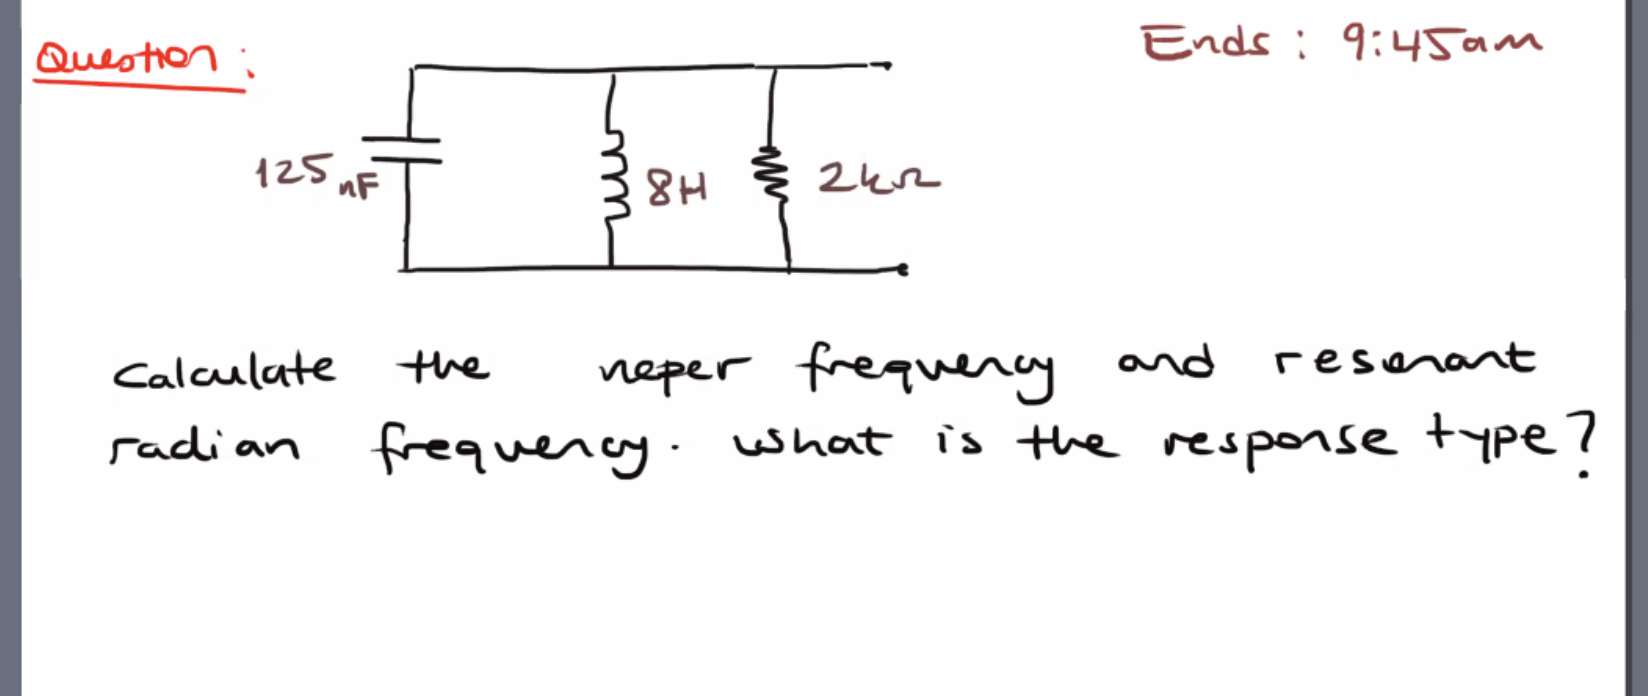 Question:
Ends: 9:45am
125nF
8H
2kΩ
Calculate the neper frequency and resonant
radian frequency. What is the response type?